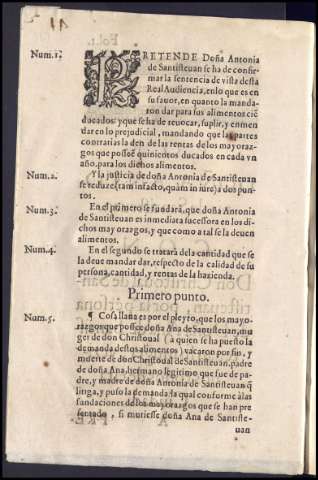 Fol.1.
Num.1. PRETENDE Doña Antonia
de Santisteuan se ha de confir-
mar la sentencia de vista desta
Real Audiencia, en lo que es en
su fauor, en quanto la manda-
ron dar para sus alimentos ciẽ
ducados: y que se ha de reuocar, suplir, y enmen
dar en lo prejudicial, mandando que las partes
contrarias la den de las rentas de los mayoraz-
gos que posseẽ quinientos ducados en cada vn
año, para los dichos alimentos.
Num.2. Y la justicia de doña Antonia de Santisteuan
se reduze (tam in facto, quàm in iure) a dos pun-
tos.
Num.3. En el primero se fundarà, que doña Antonia
de Santisteuan es inmediata sucessora en los di-
chos mayorazgos, y que como a tal se la deuen
alimentos.
Num.4. En el segundo se tratarà de la cantidad que se
la deue mandar dar, respecto de la calidad de su
persona, cantidad, y rentas de la hazienda.
Primero punto.
Num.5. ¶ Cosa llana es por el pleyto, que los mayo-
razgos que possee doña Ana de Santisteuan, mu
ger de don Christoual (a quien se ha puesto la
demanda destos alimentos) vacaron por fin, y
muerte de don Christoual de Santisteuan, padre
de doña Ana, hermano legitimo que fue de pa-
dre, y madre de doña Antonia de Santisteuan q̃
litiga, y puso la demanda: la qual conforme a las
fundaciones de los mayorazgos que se han pre
sentado, si muriesse doña Ana de Santiste-
uan